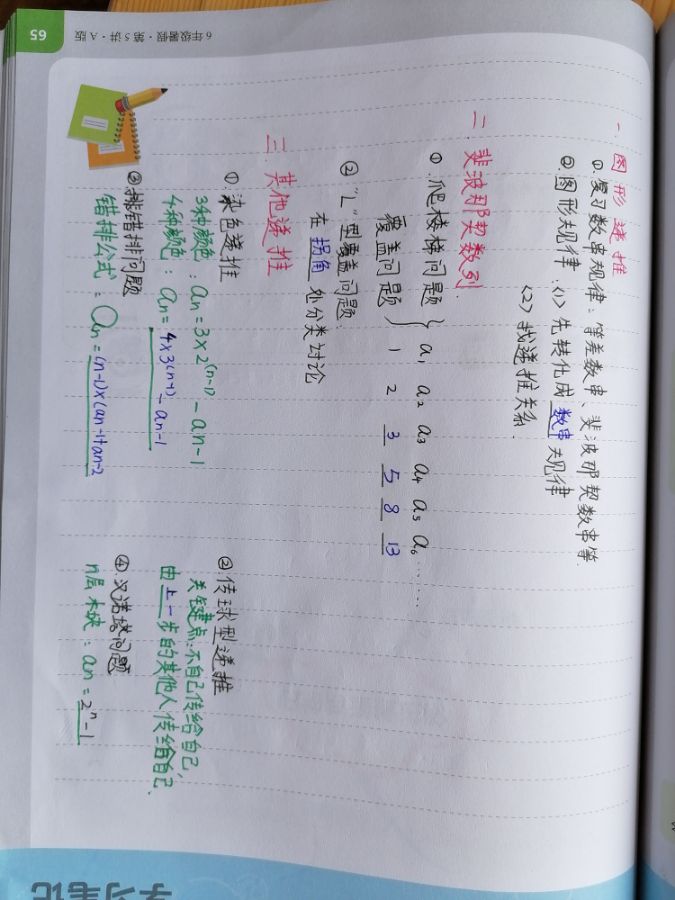 学习笔记
一. 图形递推
①. 复习数串规律：等差数串、斐波那契数串等.
②图形规律：(1) 先转化成 数串 夫规律
(2) 找递推关系.
二 斐波那契数列.
①. 爬楼梯问题 } a₁ a₂ a₃ a₄ a₅ a₆ ……
覆盖问题 } 1 2 3 5 8 13
② "L"型覆盖问题.
在 拐角 处分类讨论
三. 其他递推
①. 染色递推
3种颜色：an=3×2⁽ⁿ⁻¹⁾-an-1
4种颜色：an=4×3⁽ⁿ⁻¹⁾-an-1
②传球型递推
关键点：不自己传给自己,
由上一步的其他人传给自己.
③排错排问题
错排公式：an=(n-1)×(an-1+an-2
④汉诺塔问题
n层木块：an=2ⁿ-1
6年级暑假·第5讲·A版
65